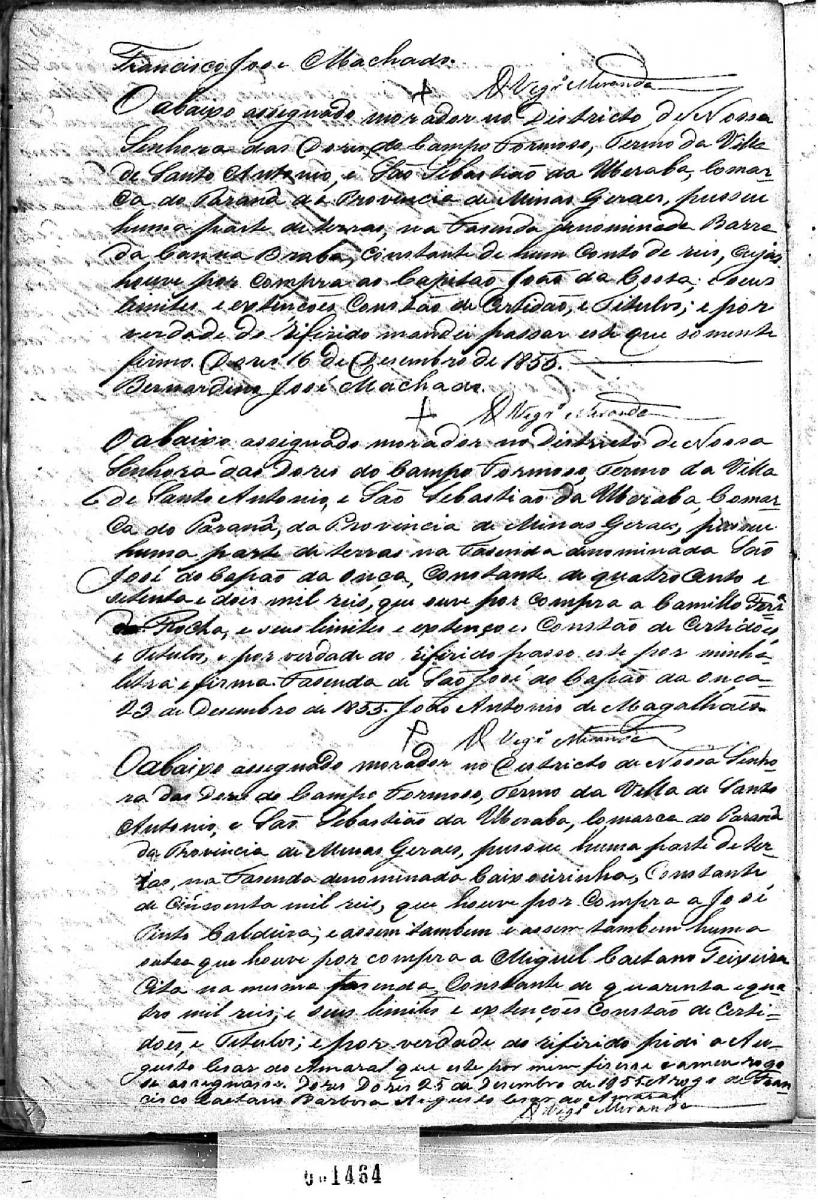 Francisco José Machado.
O Vigr.º Miranda
O abaixo assignado morador no Districto de Nossa
Senhora das Dores do Campo Formoso, Termo da Villa
de Santo Antonio, e São Sebastião da Uberaba, Comar-
ca do Paraná da Provincia de Minas Geraes, possue
huma parte de terras, na Fazenda denominada Barra
da Canna Braba, Constante de hum Conto de reis, cujas
houve por compra ao Capitão João da Costa; e seus
limites e extenções Constão de Certidão, e Titulos; e por
verdade do rifirido mandei passar este que somente
firmo. Dores 16 de Desembro de 1855.
Bernardino José Machado.
O Vigr.º Miranda
O abaixo assignado morador no Districto de Nossa
Senhora das Dores do Campo Formoso, Termo da Villa
de Santo Antonio, e São Sebastião da Uberaba, Comar-
ca do Paraná, da Provincia de Minas Geraes, possue
huma parte de terras na Fasenda denominada São
José do Capão da Onça, Constante de quatro cento e
setenta e dois mil reis, que ouve por compra a Camillo Ferr.ª
da Rocha, e seus limites e extenções Constão de Certidões,
e Titulos, e por verdade do rifirido passo este por minha
letra e firma. Fasenda de São José do Capão da Onça
23 de Desembro de 1855. João Antonio de Magalhães.
O Vigr.º Miranda
O abaixo assignado morador no Districto de Nossa Senho-
ra das Dores do Campo Formoso, Termo da Villa de Santo
Antonio, e São Sebastião da Uberaba, Comarca do Paraná
da Provincia de Minas Geraes, possue huma parte de ter-
ras, na Fasenda denominada Caixoeirinha, Constante
de Cincoenta mil reis, que houve por Compra a José
Pinto Caldeira; e assim tambem e assim tambem huma
outra que houve por compra a Miguel Caetano Teixeira
Cita na mesma fasenda, Constante de quarenta e qua-
tro mil reis; e seus limites e extenções Constão de Certi-
dões, e Titulos; e por verdade do rifirido pidi a Au-
gusto Cesar do Amaral que este por mim fisesse e a meu rogo
se assignasse. Dores Dores 25 de Desembro de 1855 A rogo de Fran-
cisco Caetano Barbosa Augusto Cesar do Amaral
O Vigr.º Miranda
1464